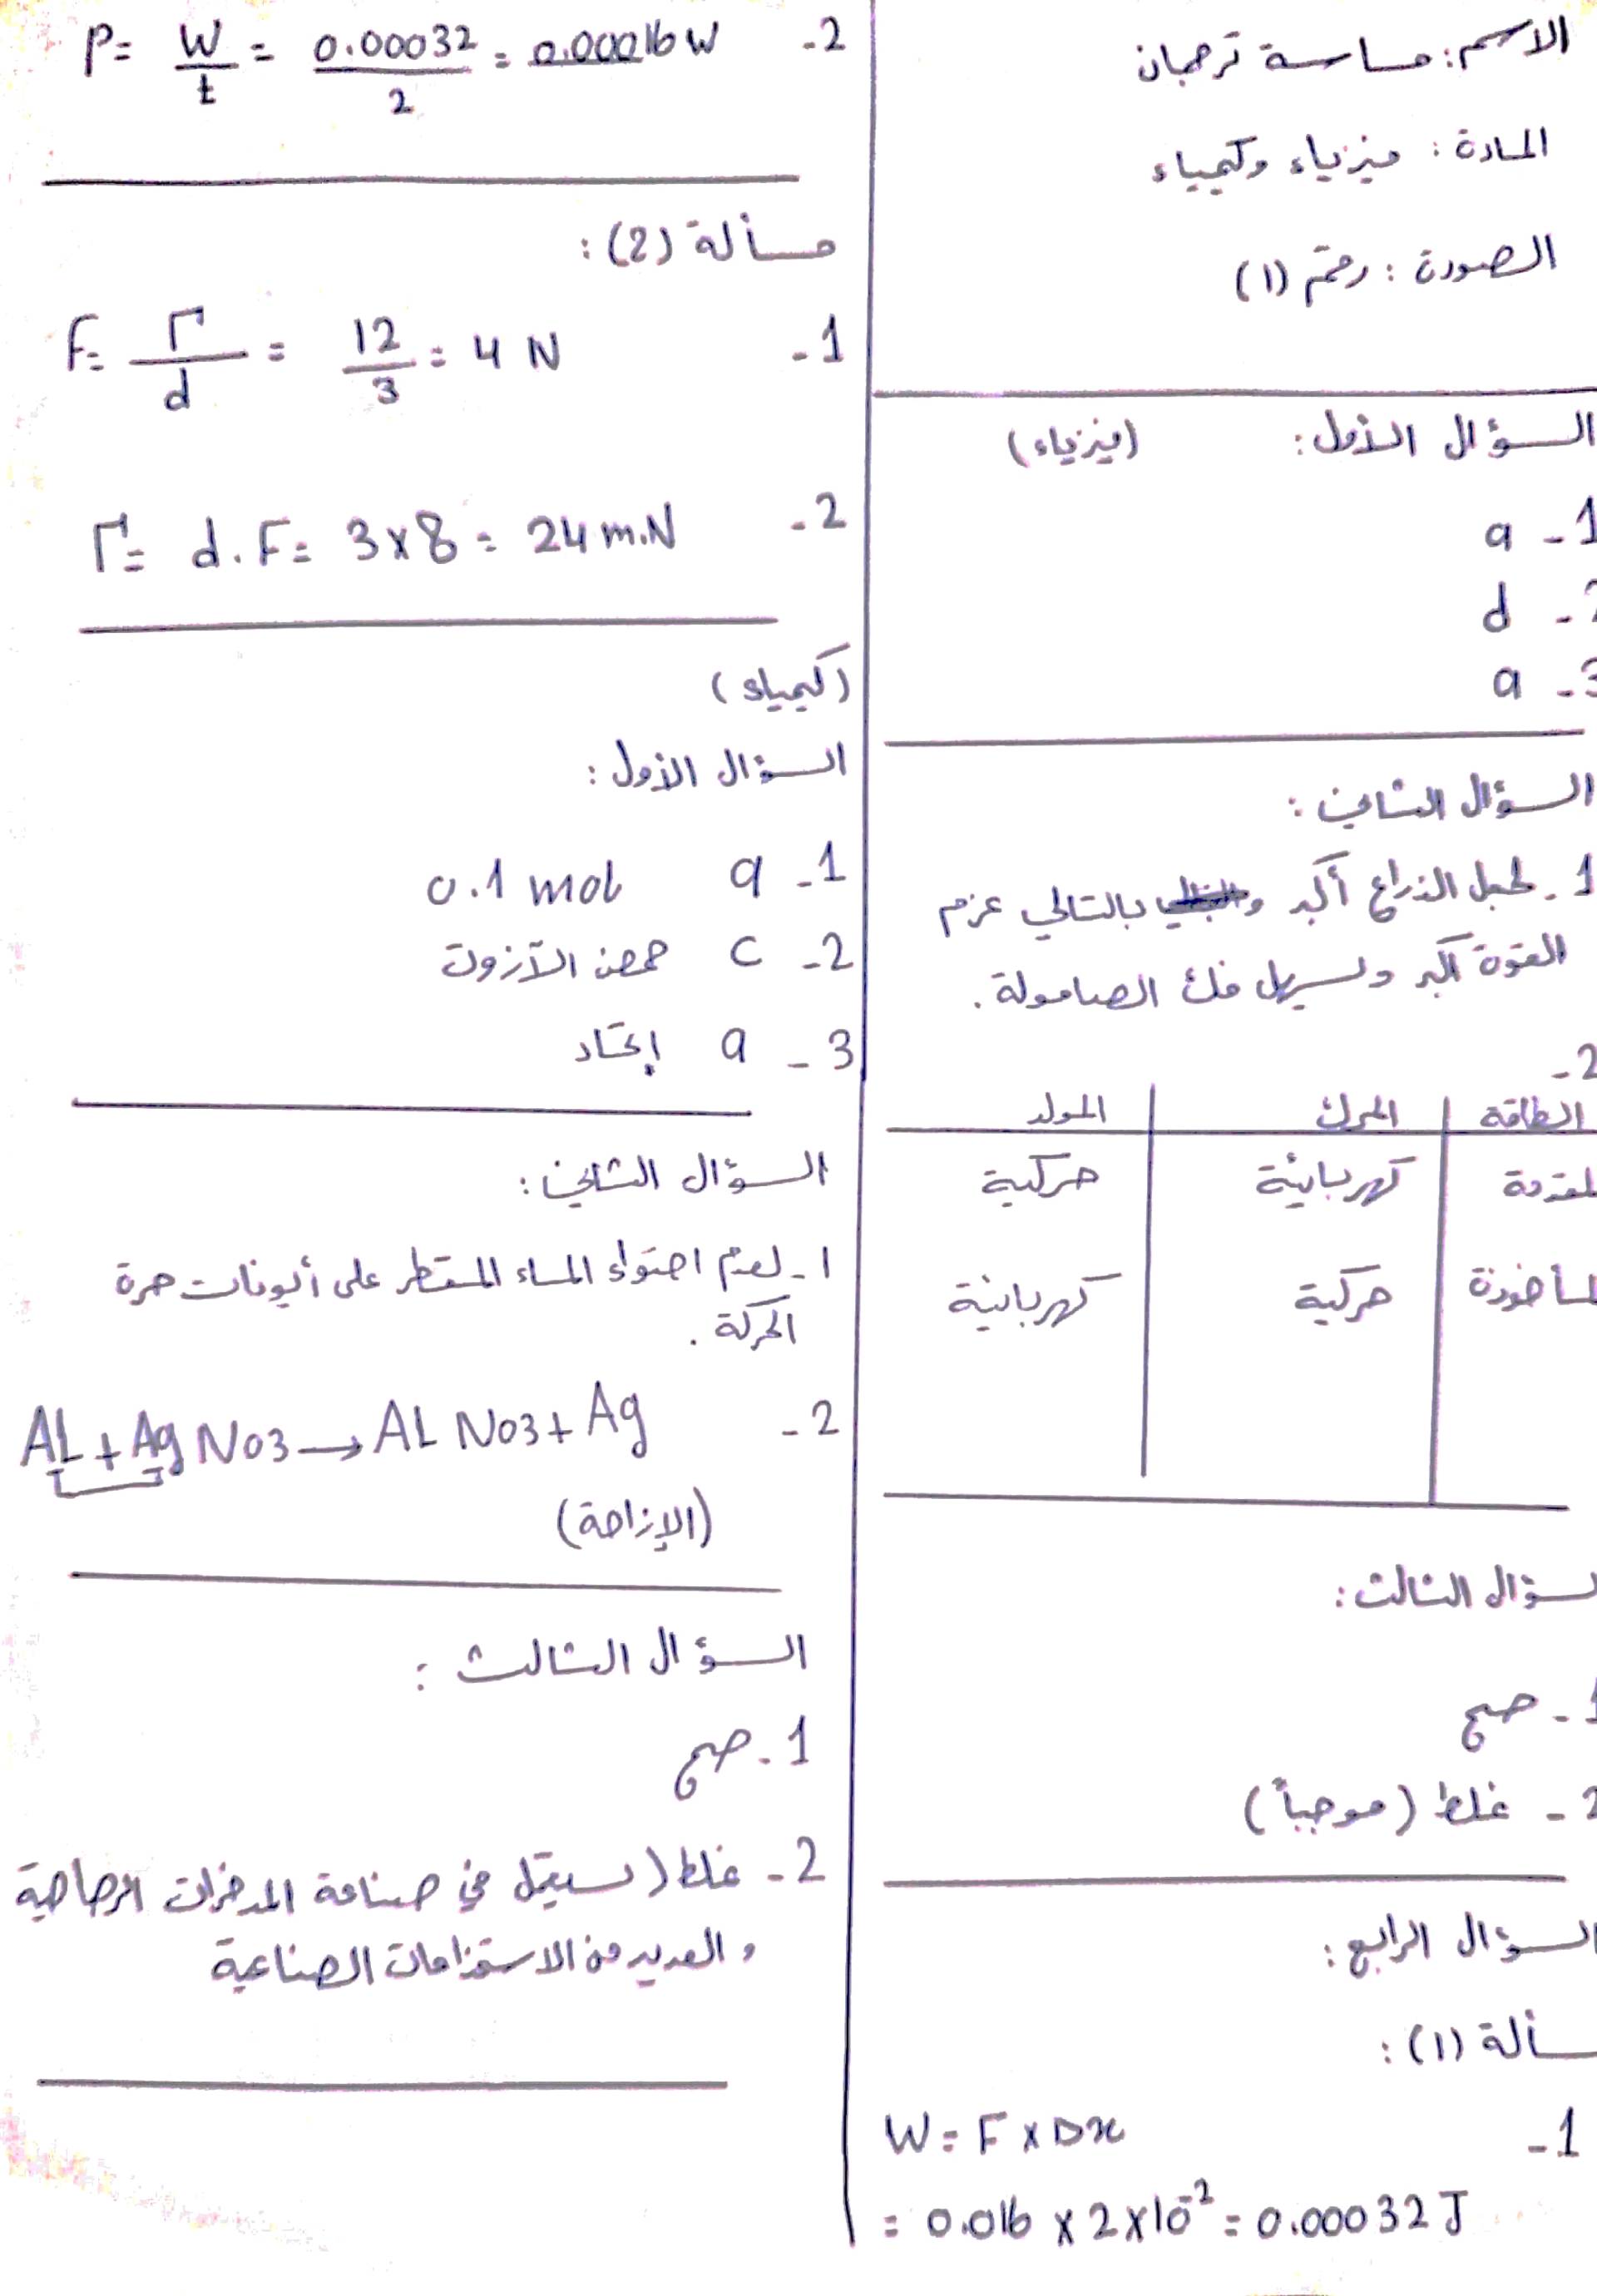 الاسم: ماسة ترجمان
المادة: فيزياء وكيمياء
الصورة: رقم (1)
السؤال الأول: (فيزياء)
1- a
2- d
3- a
السؤال الثاني:
1- لجعل الذراع أكبر بالتالي عزم
القوة أكبر ولسهل فك الصامولة.
2-
الطاقة | المحرك | المولد
المقدمة | كهربائية | حركية
المأخوذة | حركية | كهربائية
السؤال الثالث:
1- صح
2- غلط (موجباً)
السؤال الرابع:
مسألة (1):
1- W = F × Δx
= 0.016 × 2×10⁻² = 0.00032 J
2- P = W/t = 0.00032/2 = 0.00016 W
مسألة (2):
1- F = Γ/d = 12/3 = 4 N
2- Γ = d . F = 3×8 = 24 m.N
(كيمياء)
السؤال الأول:
1- a 0.1 mol
2- c حمض الآزوت
3- a إتحاد
السؤال الثاني:
1- لعدم احتواء الماء المقطر على أيونات حرة
الحركة.
2- AL + Ag NO3 → AL NO3 + Ag
(الإزاحة)
السؤال الثالث:
1- صح
2- غلط (يستعمل في صناعة المدخرات الرصاصية
و العديد من الاستخدامات الصناعية